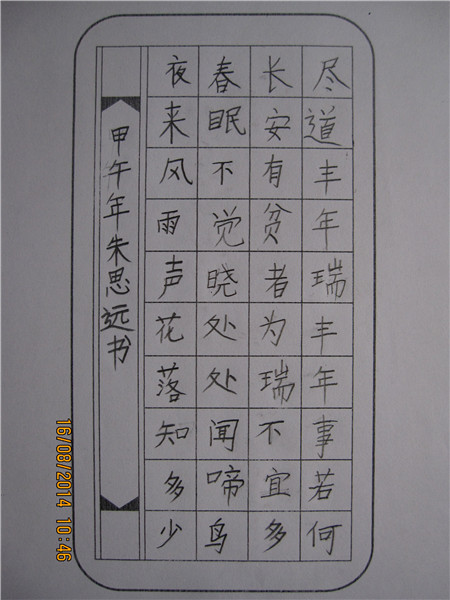 尽道丰年瑞丰年事若何
长安有贫者为瑞不宜多
春眠不觉晓处处闻啼鸟
夜来风雨声花落知多少
甲午年朱思远书
16/08/2014 10:46